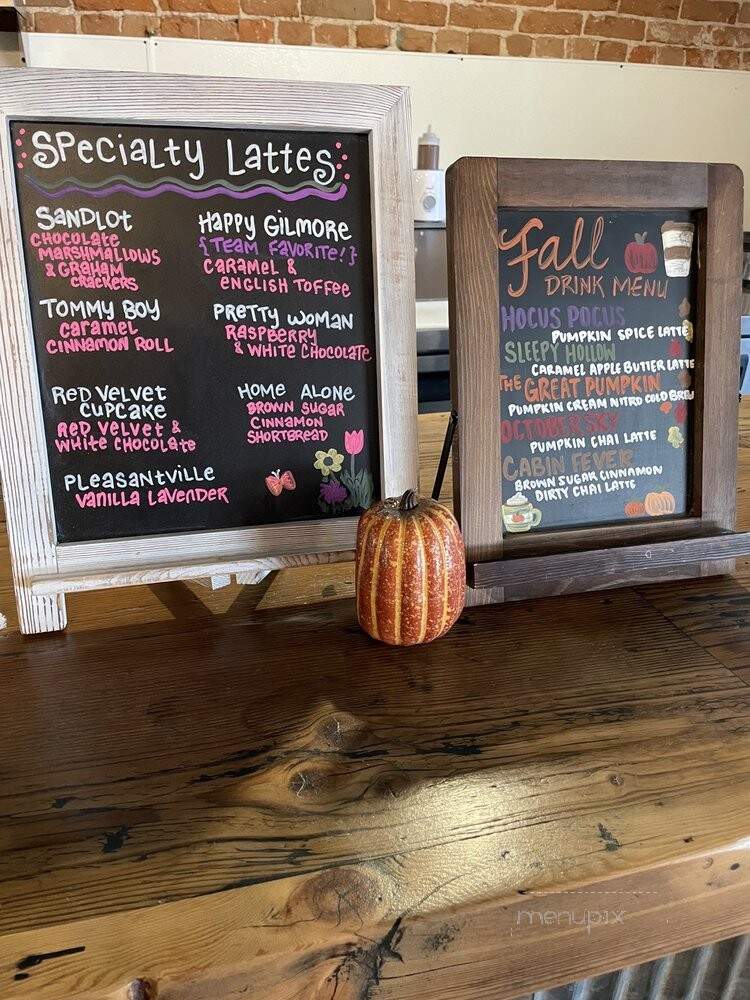 Specialty Lattes
Sandlot
Chocolate
Marshmallows
& Graham
Crackers
Tommy Boy
Caramel
Cinnamon Roll
Red Velvet
Cupcake
Red Velvet &
White Chocolate
Pleasantville
Vanilla Lavender
Happy Gilmore
{Team Favorite!}
Caramel &
English Toffee
Pretty Woman
Raspberry
& White Chocolate
Home Alone
Brown Sugar
Cinnamon
Shortbread
Fall
Drink Menu
Hocus Pocus
Pumpkin Spice Latte
Sleepy Hollow
Caramel Apple Butter Latte
The Great Pumpkin
Pumpkin Cream Nitro Cold Brew
October Sky
Pumpkin Chai Latte
Cabin Fever
Brown Sugar Cinnamon
Dirty Chai Latte
menupix